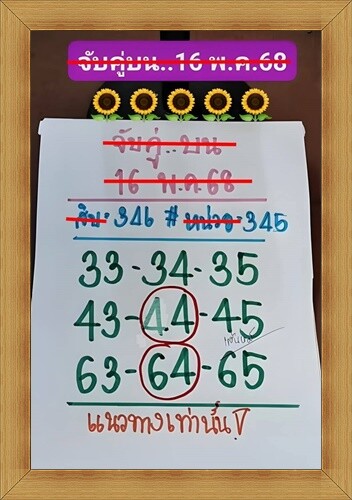 จับคู่บน..16 พ.ค.68
จับคู่..บน
16 พ.ค.68
สิบ-346 # หน่วย-345
33-34-35
43-44-45
63-64-65
แนวทางเท่านั้น!